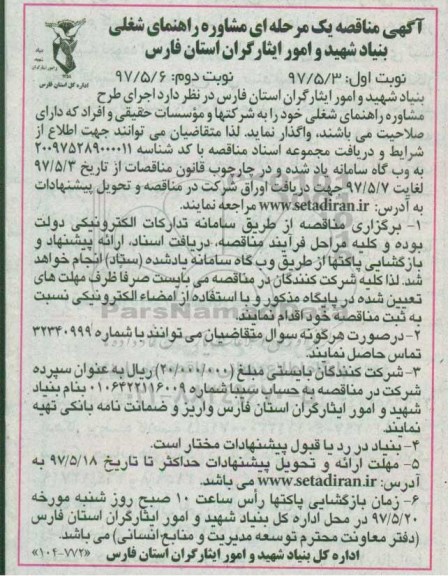 آگهی مناقصه یک مرحله ای مشاوره راهنمای شغلی
بنیاد شهید و امور ایثارگران استان فارس
نوبت اول: ۹۷/۵/۳ نوبت دوم: ۹۷/۵/۶
اداره کل استان فارس
بنیاد شهید و امور ایثارگران استان فارس در نظر دارد اجرای طرح
مشاوره راهنمای شغلی خود را به شرکتها و مؤسسات حقیقی و افراد که دارای
صلاحیت می باشند، واگذار نماید. لذا متقاضیان می توانند جهت اطلاع از
شرایط و دریافت مجموعه اسناد مناقصه با کد شناسه ۲۰۰۹۷۵۲۸۹۰۰۰۰۱۱
به وب گاه سامانه یاد شده و در چارچوب قانون مناقصات از تاریخ ۹۷/۵/۳
لغایت ۹۷/۵/۷ جهت دریافت اوراق شرکت در مناقصه و تحویل پیشنهادات
به آدرس: www.setadiran.ir مراجعه نمایند.
۱- برگزاری مناقصه از طریق سامانه تدارکات الکترونیکی دولت
بوده و کلیه مراحل فرآیند مناقصه، دریافت اسناد، ارائه پیشنهاد و
بازگشایی پاکتها از طریق وب گاه سامانه یادشده (ستاد) انجام خواهد
شد. لذا کلیه شرکت کنندگان در مناقصه می بایست صرفا ظرف مهلت های
تعیین شده در پایگاه مذکور و با استفاده از امضاء الکترونیکی نسبت
به ثبت مناقصه خود اقدام نمایند.
۲- در صورت هرگونه سوال متقاضیان می توانند با شماره ۳۲۳۴۰۹۹۹
تماس حاصل نمایند.
۳- شرکت کنندگان بایستی مبلغ (۲۰/۰۰۰/۰۰۰) ریال به عنوان سپرده
شرکت در مناقصه به حساب سیبا شماره ۰۱۰۶۴۲۲۱۱۶۰۰۹ بنام بنیاد
شهید و امور ایثارگران استان فارس واریز و ضمانت نامه بانکی تهیه
نمایند
۴- بنیاد در رد یا قبول پیشنهادات مختار است.
۵- مهلت ارائه و تحویل پیشنهادات حداکثر تا تاریخ ۹۷/۵/۱۸ به
آدرس: www.setadiran.ir می باشد.
۶- زمان بازگشایی پاکتها رأس ساعت ۱۰ صبح روز شنبه مورخه
۹۷/۵/۲۰ در محل اداره کل بنیاد شهید و امور ایثارگران استان فارس
(دفتر معاونت محترم توسعه مدیریت و منابع انسانی) می باشد.
اداره کل بنیاد شهید و امور ایثارگران استان فارس «۱۰۴-۷۷۲»